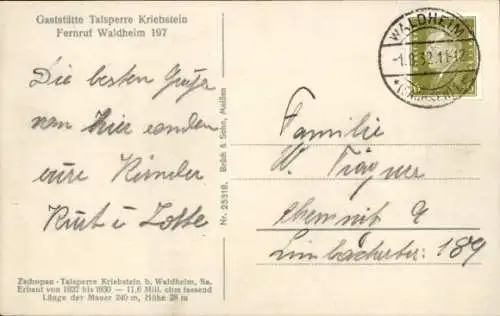 Gaststätte Talsperre Kriebstein
Fernruf Waldheim 197
Die besten Grüße
von hier senden
eure Kinder
Kurt u Lotte
Zschopau-Talsperre Kriebstein b. Waldheim, Sa.
Erbaut von 1927 bis 1930 — 11,6 Mill. cbm fassend
Länge der Mauer 240 m, Höhe 28 m
Nr. 25318. Brück & Sohn, Meißen
WALDHEIM
32.11-12
Familie
W. Trägner
Chemnitz 9
Limbacherstr. 189